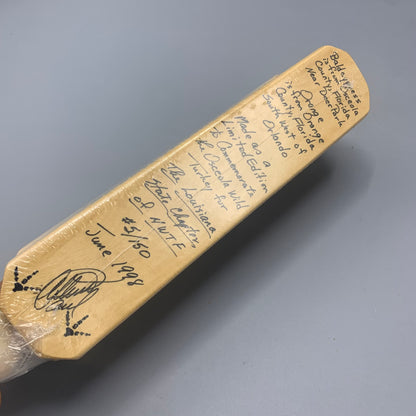 Bald Cypress
is from Osceola
County, Florida
Near Deer Park
Orange
is from Orange
County, Florida
South West of
Orlando
Made as a
Limited Edition
to Commemorate
the Osceola Wild
Turkey for
The Louisiana
State Chapter
of NWTF
#5/150
June 1998